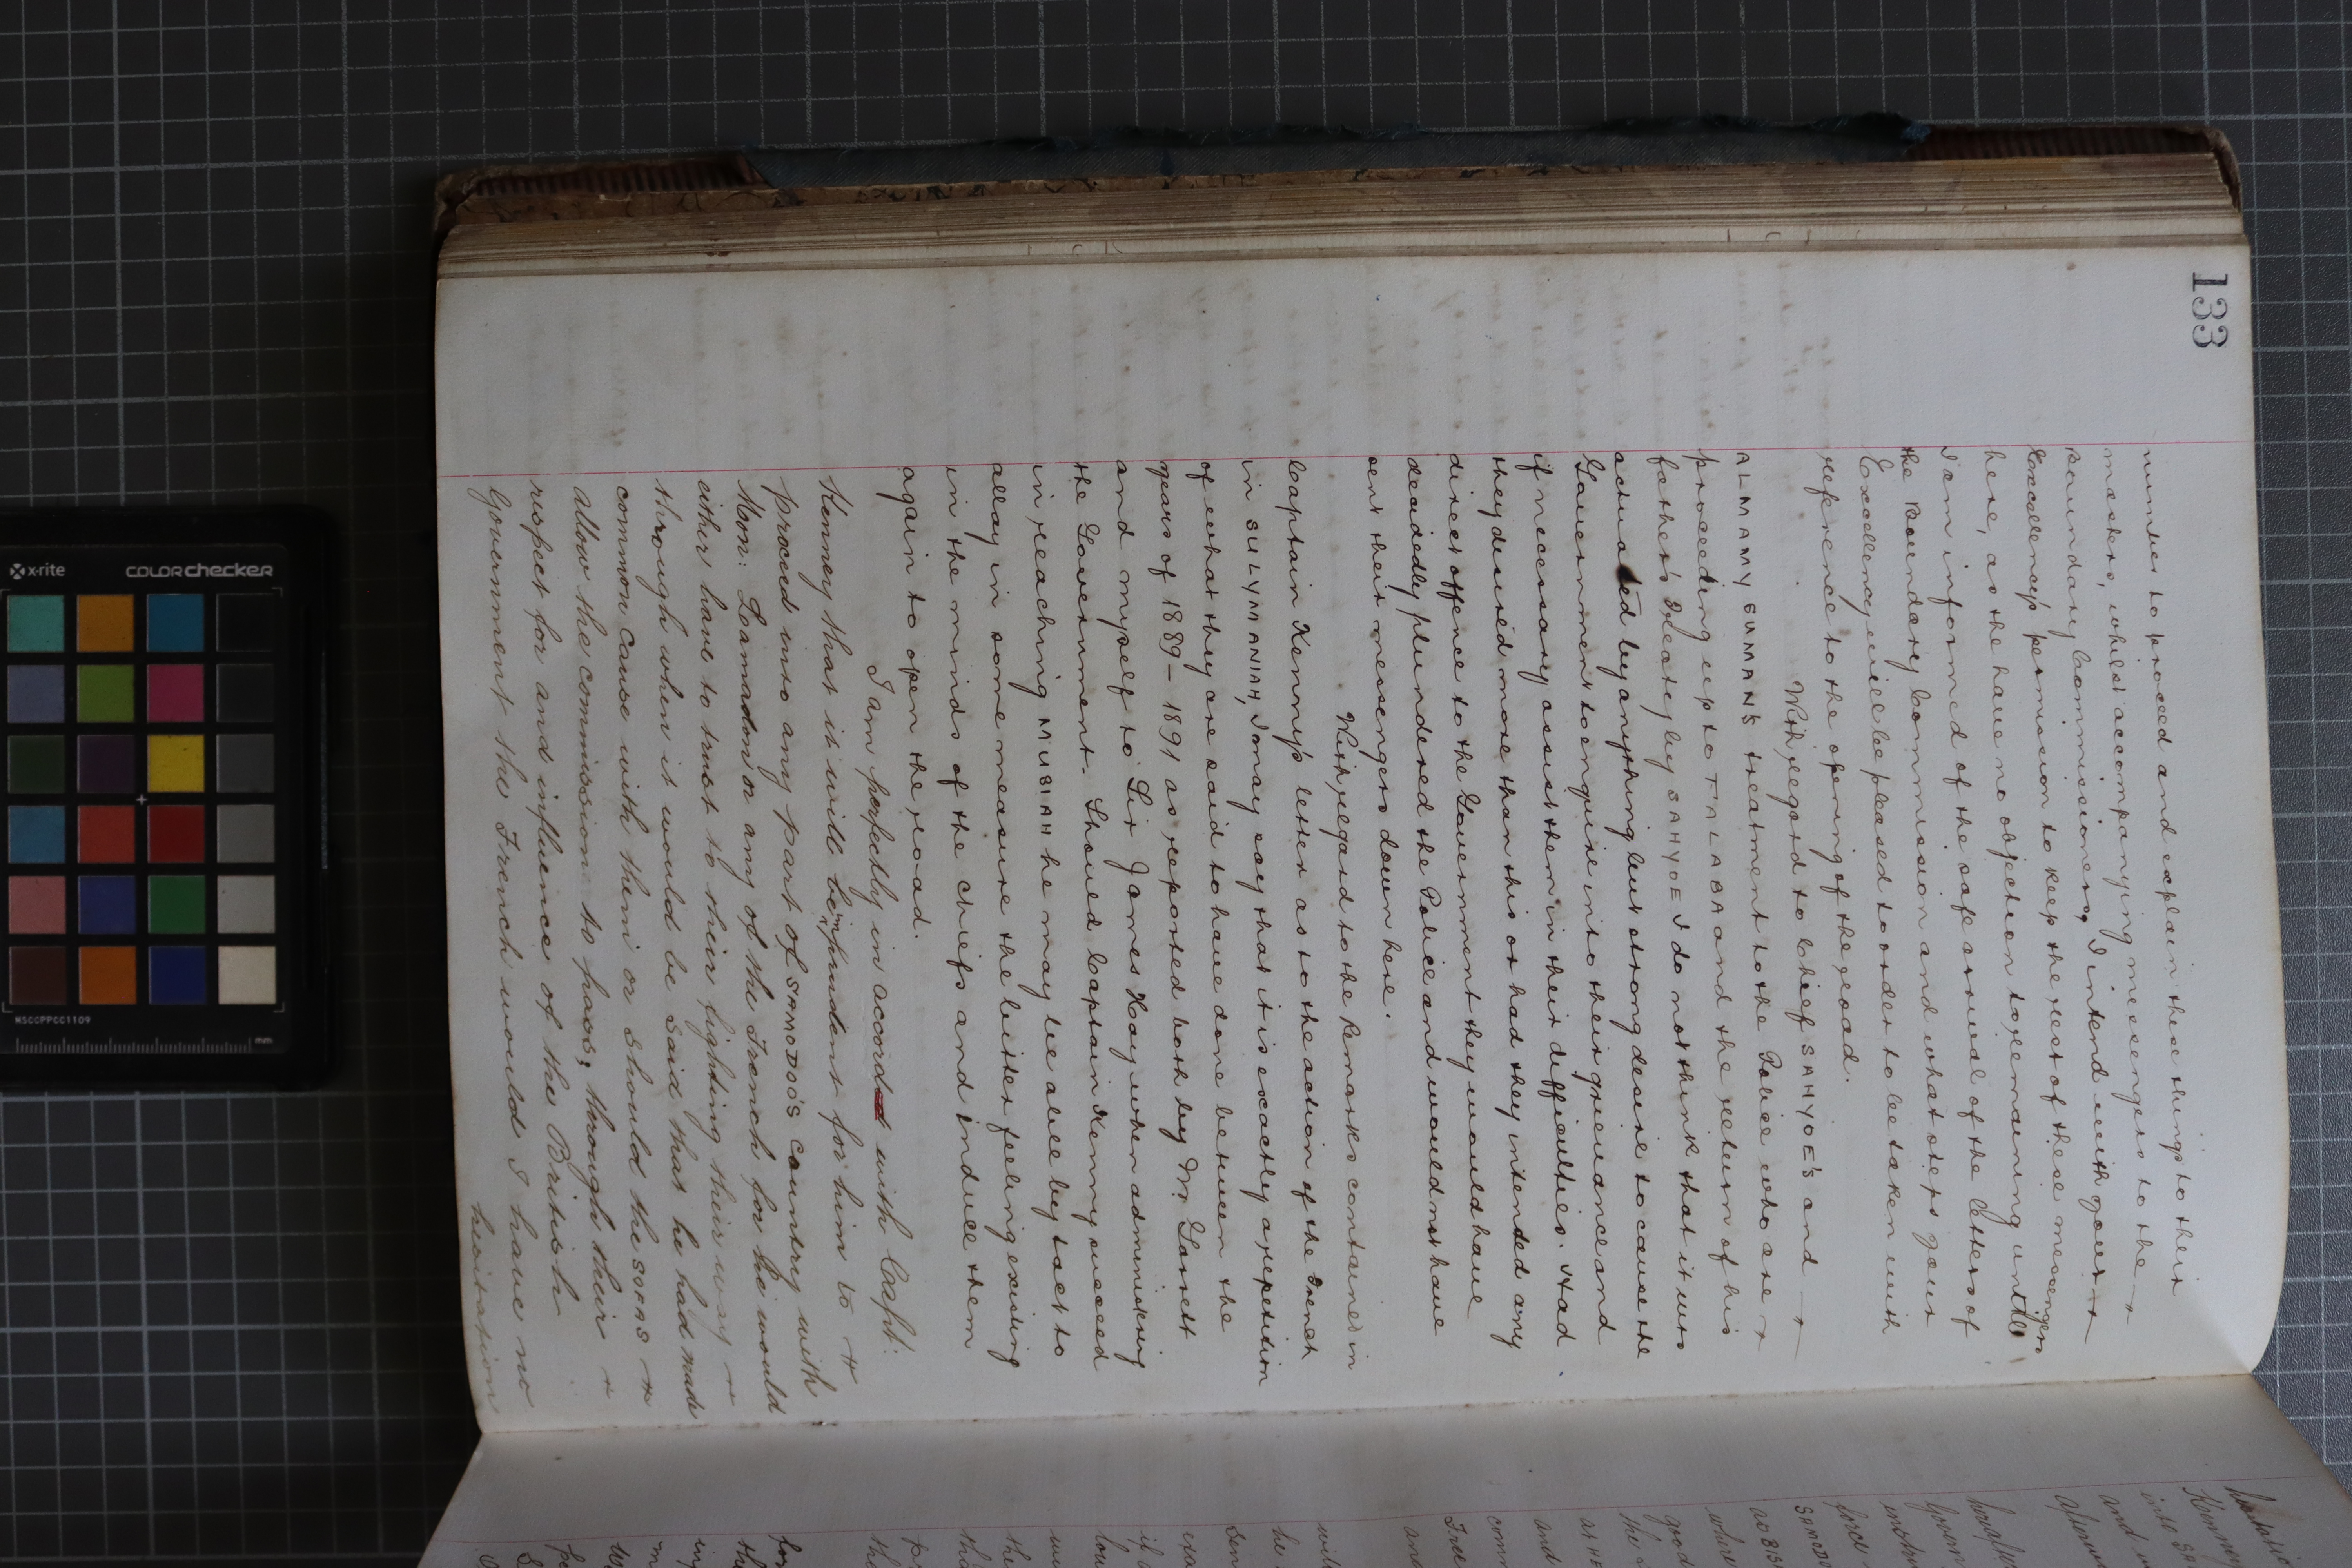 133
number to proceed and explain these things to their
masters, whilst accompanying messengers to the
Boundary Commissioners, I intend with your
Excellency's permission to keep the rest of these messengers
here, as they have no objection to remaining until
I am informed of the safe arrival of the letters of
the Boundary Commission and what steps your
Excellency will be pleased to order to be taken with
reference to the opening of the road.
With regard to Chief SAHYOE'S and
ALMAMY SUMAN'S treatment to the Police who are
proceeding up to FALABA and the return of his
father's treaty by SAHYOE I do not think that it was
actuated by anything but strong desire to cause the
Government to enquire into their grievance and
if necessary assist them in their difficulties. Had
they desired more than this or had they intended any
direct offence to the Government they would have
decidedly plundered the Police and would not have
sent their messengers down here.
With regard to the Remarks contained in
Captain Kenny's letter as to the action of the French
in SULYMANIAH, I may say that it is exactly a repetition
of what they are said to have done between the
years of 1889-1891 as reported both by Mr. Garrett
and myself to Sir James Hay when administering
the Government. Should Captain Kenny succeed
in reaching MUSIAH he may be able by tact to
allay in some measure the bitter feeling existing
in the minds of the chiefs and induce them
again to open the road.
I am perfectly in accord with Capt:
Kenney that it will be imprudent for him to
proceed into any part of SAMODOO'S country with
Monr: Lamadon or any of the French for he would
either have to trust to their fighting their way
through when it would be said that he had made
common cause with them or should the SOFAS
allow the commission to pass, through their
respect for and influence of the British
Government the French would I have no
hesitation
COLORchecker
x-rite
MSCCPPCC1109
mm